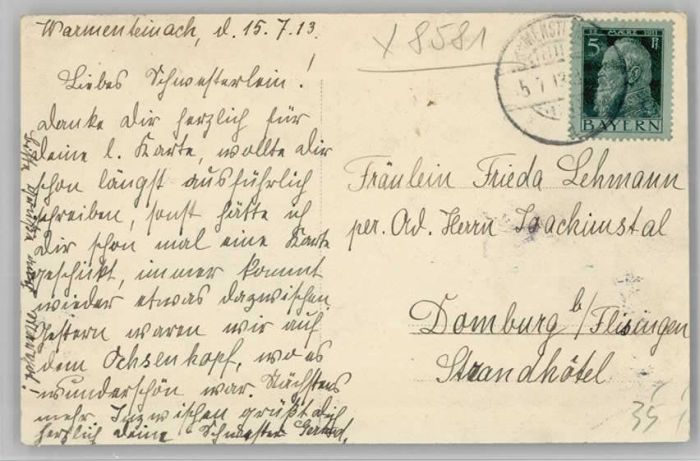 Warmensteinach, d. 15.7.13.
Liebes Schwesterlein!
danke dir herzlich für
deine l. Karte, wollte dir
schon längst ausführlich
schreiben, sonst hätte ich
Dir schon mal eine Karte
geschikt, immer kommt
wieder etwas dazwischen.
Gestern waren wir auf
dem Ochsenkopf, wo es
wunderschön war. Nächstens
mehr. Inzwischen grüßt dich
herzlich deine Schwester
x 8581
5 7 13
12. MAERZ 1911
5 Pf
BAYERN
Fräulein Frieda Lehmann
per. Ad. Herrn Joachimstal
Domburg b/Flisingen
Strandhôtel
35